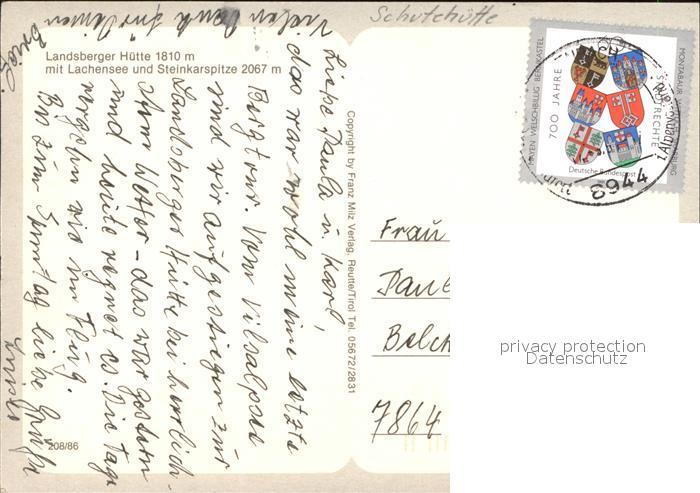 Schutzhütte
Vielen Dank für Deinen
Brief
Landsberger Hütte 1810 m
mit Lachensee und Steinkarspitze 2067 m
Liebe Paula u. Karl!
das war wohl meine letzte
Bergtour. Vom Vilsalpsee
sind wir aufgestiegen zur
Landsberger Hütte bei herrlich-
stem Wetter - das war gestern
und heute regnet es. Die Tage
vergehn wie im Flug.
Bis zum Sonntag liebe Grüße
208/86
Copyright by Franz Milz Verlag, Reutte/Tirol Tel. 05672/2831
Frau
7864
700 JAHRE
STADTRECHTE
MAYEN WELSCHBILLIG BERNKASTEL
MONTABAUR
SAARBURG
Deutsche Bundespost
8944
privacy protection
Datenschutz